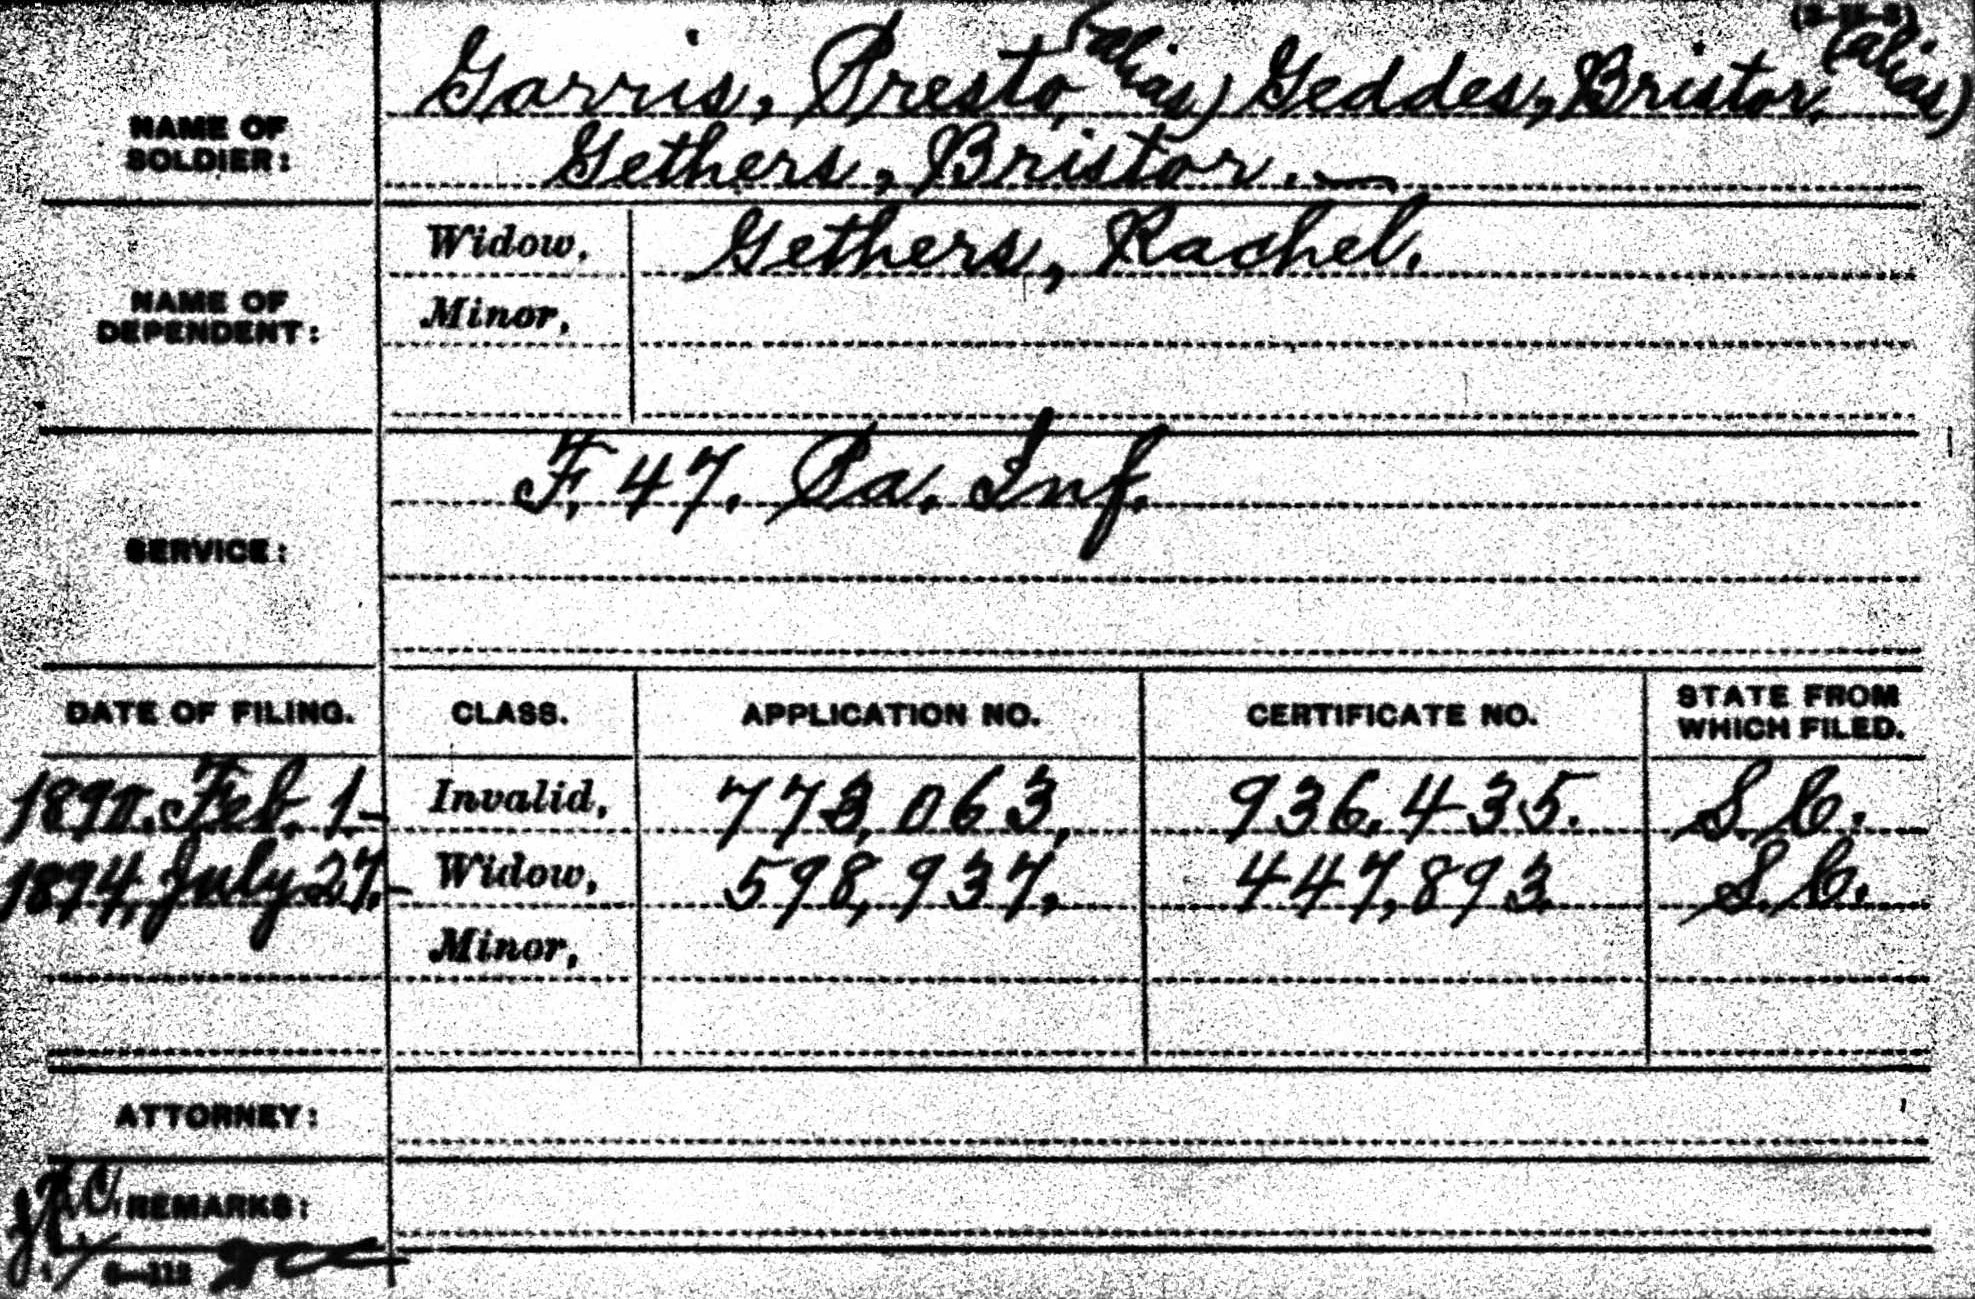 NAME OF SOLDIER: Garris, Presto, (alias) Geddes, Bristor, (alias)
Gethers, Bristor.—
NAME OF DEPENDENT: Widow, Gethers, Rachel.
Minor,
SERVICE: F, 47. Pa. Inf.
DATE OF FILING. CLASS. APPLICATION NO. CERTIFICATE NO. STATE FROM WHICH FILED.
1890. Feb. 1.- Invalid, 773,063, 936,435. S.C.
1894, July 27,- Widow, 598,937, 447,893 S.C.
Minor,
ATTORNEY:
REMARKS: